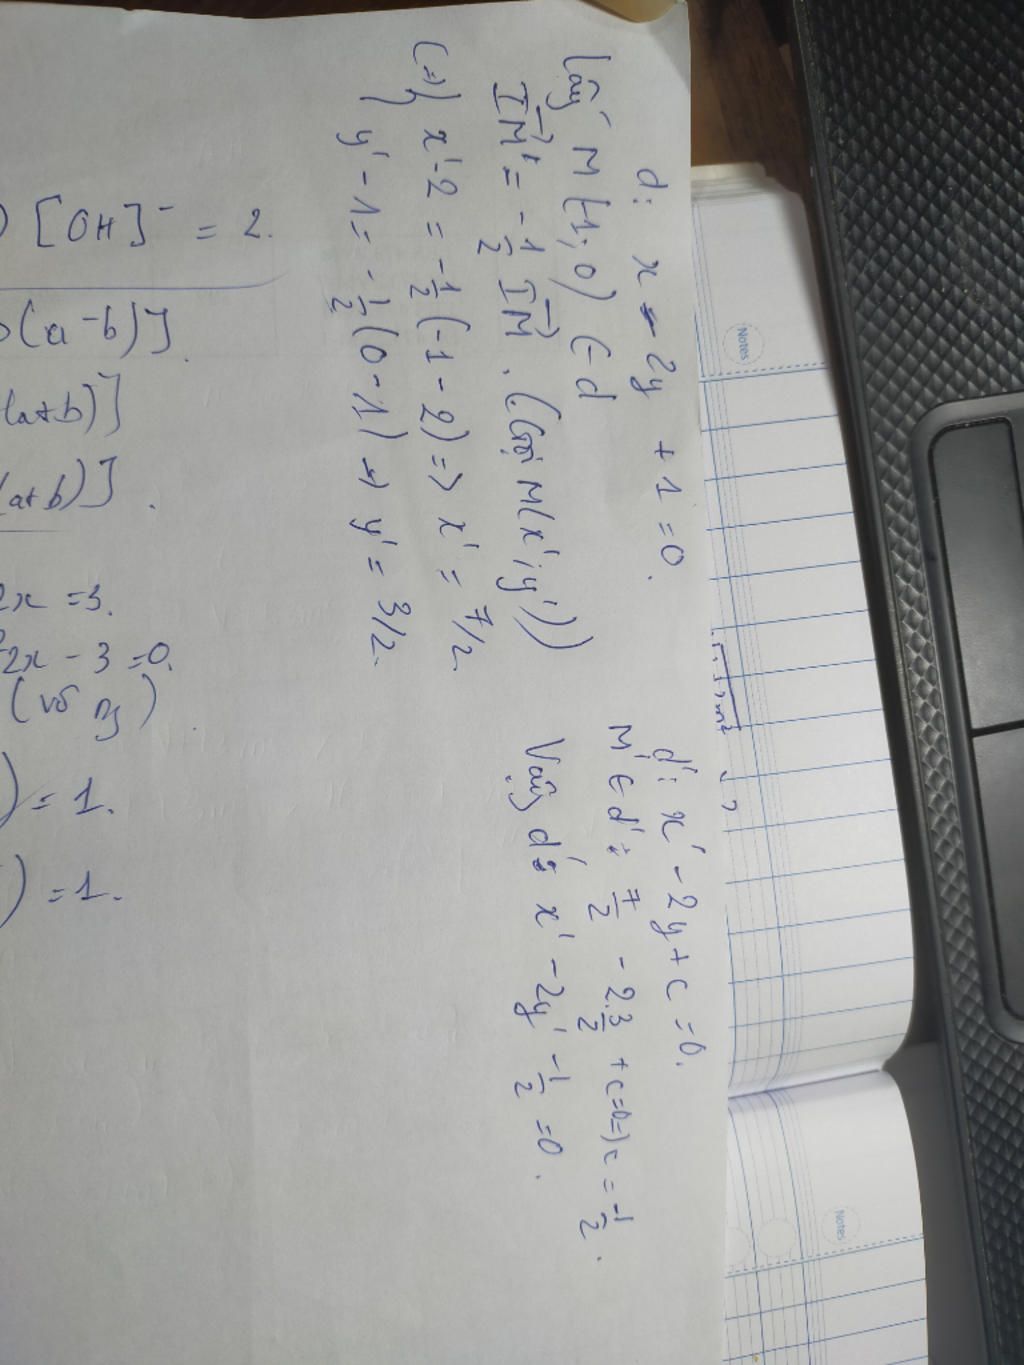 d: x - 2y + 1 = 0.
Lấy M(-1; 0) ∈ d
IM' = -1/2 IM. (Gọi M(x'; y'))
(=) { x' - 2 = -1/2 (-1 - 2) => x' = 7/2.
y' - 1 = -1/2 (0 - 1) => y' = 3/2.
d': x' - 2y + c = 0.
M' ∈ d': 7/2 - 2.3/2 + c = 0 => c = -1/2.
Vậy d': x' - 2y' - 1/2 = 0.
) [OH]⁻ = 2.
(a - b)].
(a + b)]
(a + b)].
2x = 3.
2x - 3 = 0.
(vô ng)
) = 1.
) = 1.
Notes
Notes